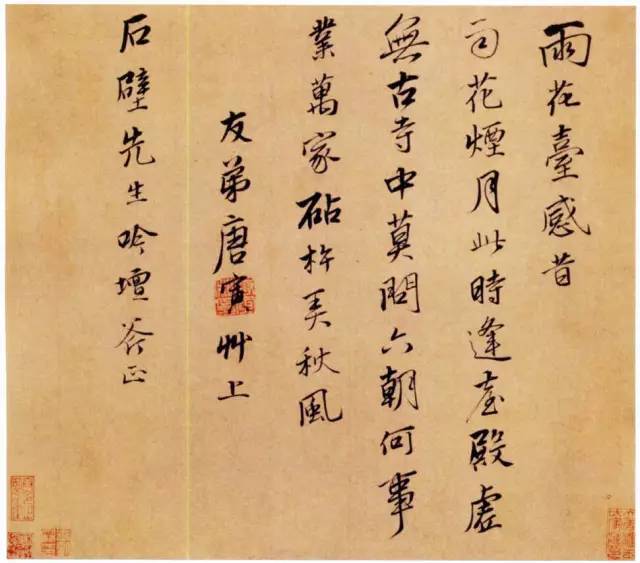 雨花臺感昔
雨花煙月此時逢臺殿虛
無古寺中莫問六朝何事
業萬家砧杵秋風
友弟唐寅艸上
石壁先生吟壇斧正